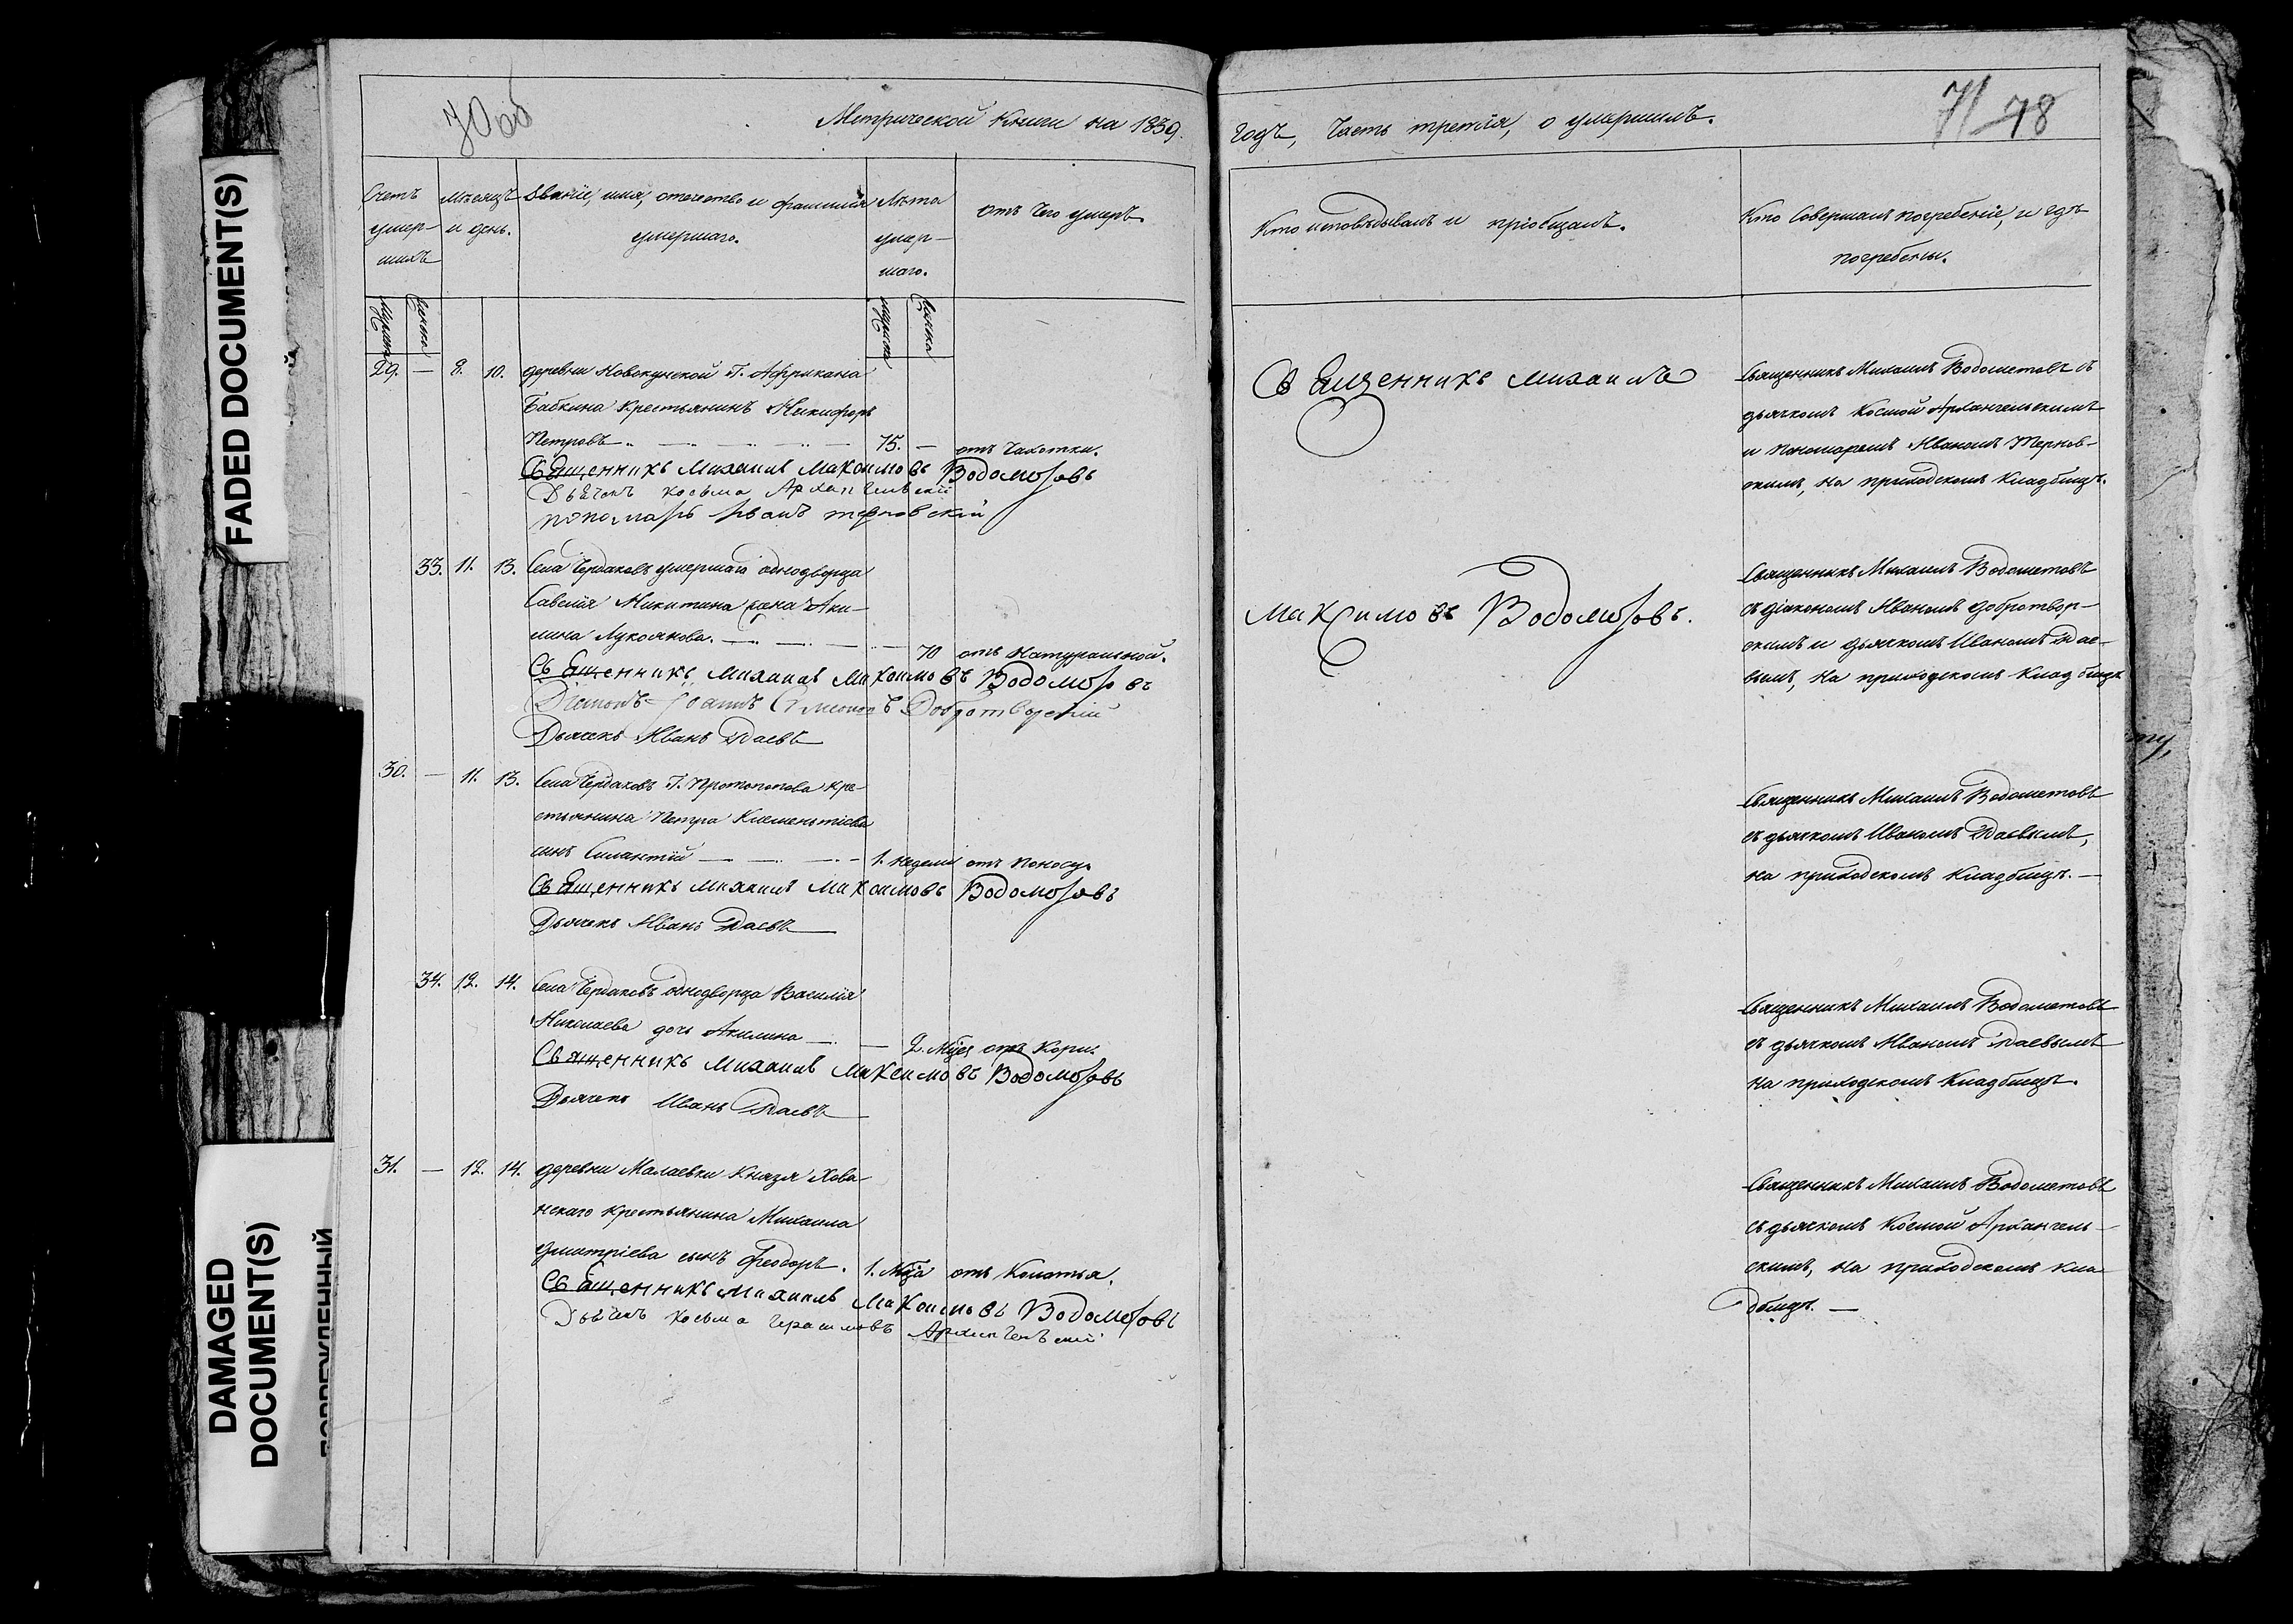 FADED DOCUMENT(S)
DAMAGED
DOCUMENT(S)
70 об
Метрической Книги на 1839.
Годъ, Часть третiя, о умершихъ.
71
78
Счетъ умер-шихъ
Мѣсяцъ и день.
Званiе, имя, отечество и фамилiя умершаго.
Лѣта умер-шаго.
отъ Чего умеръ
Кто исповѣдывалъ и прiобщалъ.
Кто Совершалъ погребенiе, и гдѣ погребены.
29. — 8. 10. деревни Новокунской Г. Африкана
Бабкина Крестьянинъ Никифоръ
Петровъ 75. — отъ Чахотки.
Священникъ Михаилъ Максимовъ Водометовъ
Дьячекъ Косьма Архангельскiй
пономарь Иванъ терновскiй
Священникъ Михаилъ
Священникъ Михаилъ Водометовъ съ
дьячкомъ Космой Архангельскимъ
и пономаремъ Иваномъ Тернов-
скимъ, на приходскомъ Кладбищѣ.
33. 11. 13. Села Чердаковъ умершаго однодворца
Савелiя Никитина жена Аки-
лина Лукоянова. 70 отъ Натуральной.
Священникъ Михаилъ Максимовъ Водометовъ
Дiаконъ Iоаннъ Добротворскiй
Дьячекъ Иванъ Раевъ
Максимовъ Водометовъ.
Священникъ Михаилъ Водометовъ
съ дiакономъ Иваномъ Добротвор-
скимъ и дьячкомъ Иваномъ Рае-
вымъ, на приходскомъ Кладбищѣ
30. — 11. 13. Села Чердаковъ Г. Протопопова Кре-
стьянина Петра Клементiева
сынъ Силантiй 1. недели отъ Поносу.
Священникъ Михаилъ Максимовъ Водометовъ
Дьячекъ Иванъ Раевъ
Священникъ Михаилъ Водометовъ
съ дьячкомъ Иваномъ Раевымъ,
на приходскомъ Кладбищѣ. —
34. 12. 14. Села Чердаковъ однодворца Василiя
Николаева дочь Акилина — 2. Мѣся отъ Кори.
Священникъ Михаилъ Максимовъ Водометовъ
Дьячекъ Иванъ Раевъ
Священникъ Михаилъ Водометовъ
съ дьячкомъ Иваномъ Раевымъ
на приходскомъ Кладбищѣ.
31. — 12. 14. деревни Малаевки Князя Хова-
нскаго Крестьянина Михаила
Дмитрiева сынъ Феодоръ. 1. Мѣся отъ Колотья.
Священникъ Михаилъ Максимовъ Водометовъ
Дьячекъ Косьма Герасимовъ Архангельскiй
Священникъ Михаилъ Водометовъ
съ дьячкомъ Космой Архангель-
скимъ, на приходскомъ Кла-
дбищѣ. —